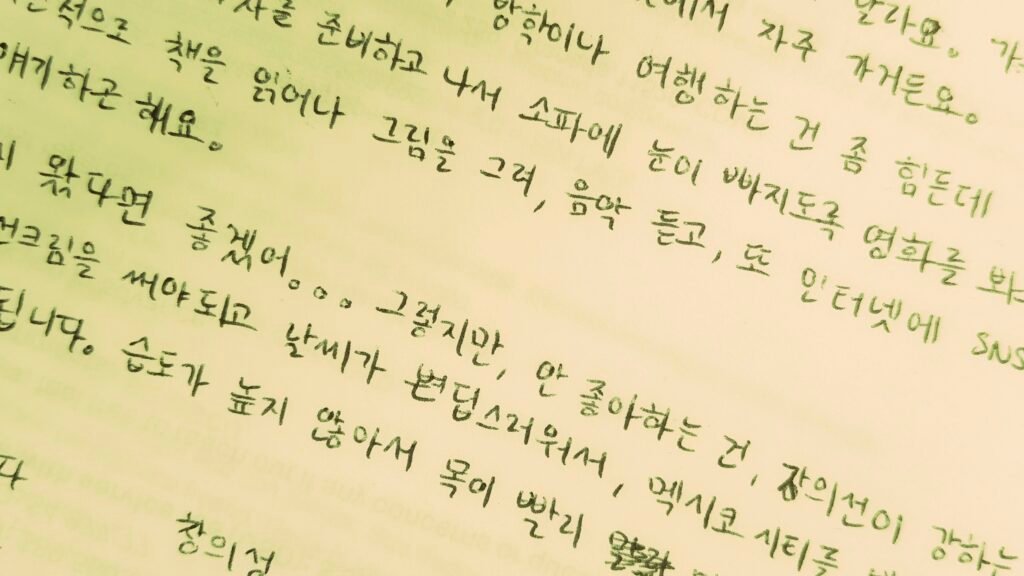 달라요.
에서 자주 가거든요.
방학이나 여행하는 건 좀 힘든데
준비하고 나서 소파에 눈이 빠지도록 영화를 봐
적으로 책을 읽어나 그림을 그려, 음악 듣고, 또 인터넷에 SNS
얘기하곤 해요.
왔다면 좋겠어... 그렇지만, 안 좋아하는 건, 자의선이 강하는
선크림을 써야되고 날씨가 변덥스러워서, 멕시코 시티를
됩니다. 습도가 높지 않아서 목이 빨리
다
창의성